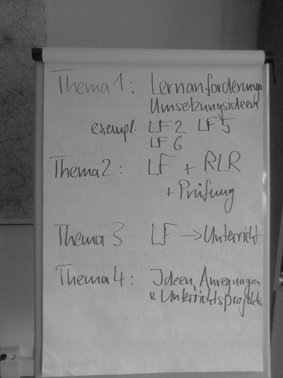 Thema 1: Lernanforderungen
Umsetzungsideen
exempl. LF2 LF5
LF6
Thema 2: LF + RLR
+ Prüfung
Thema 3 LF → Unterricht
Thema 4: Ideen, Anregungen
u. Unterrichtsprojekte